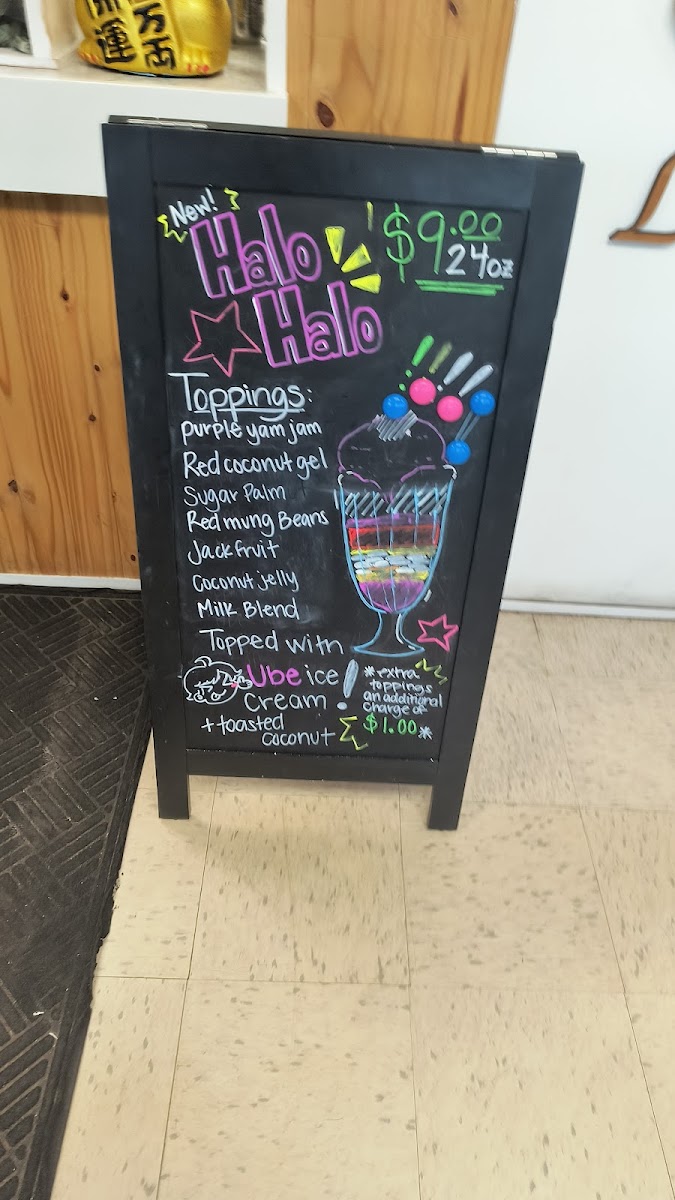 開運
百万両
New!
Halo
Halo
$9.00
24oz
Toppings:
purple yam jam
Red coconut gel
Sugar Palm
Red mung Beans
Jackfruit
Coconut jelly
Milk Blend
Topped with
Ube ice
cream!
+ toasted
coconut
*extra
toppings
an additional
charge of
$1.00*